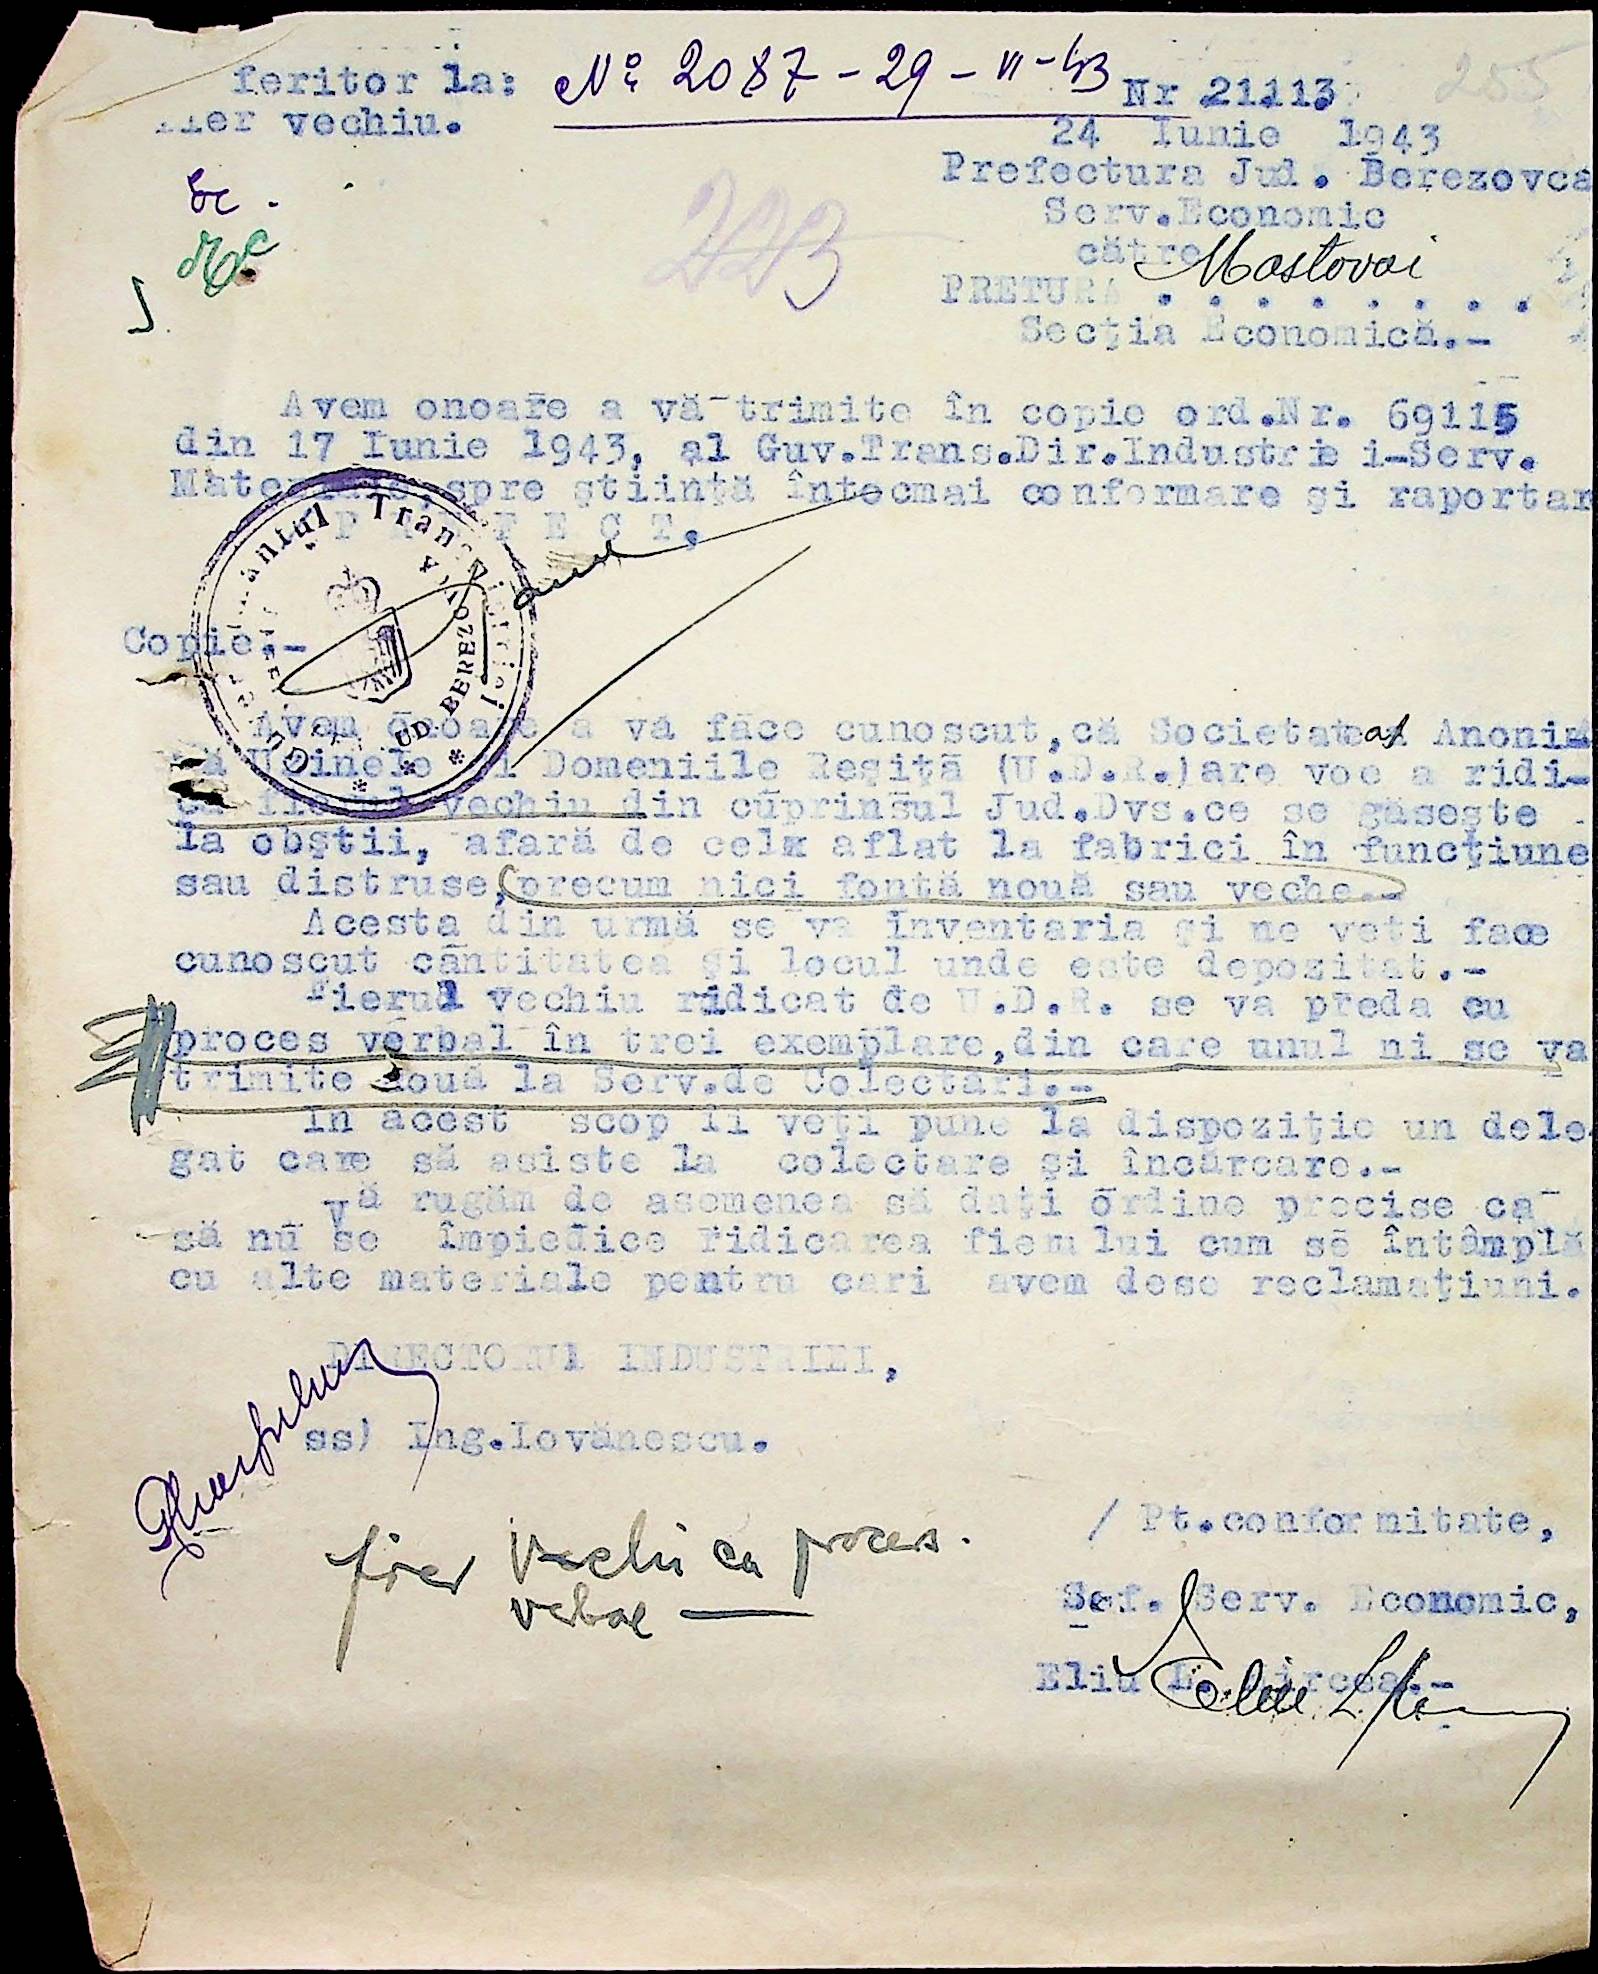 feritor la: Nº 2087 - 29 - VI - 43 Nr 21113 255
fier vechiu.
24 Iunie 1943
Prefectura Jud. Berezovca
Ec.
Serv.Economic
223
către
PRETURA Mostovoi . . . . . . . .
Secţia Economică.-
Avem onoare a vă trimite în copie ord.Nr. 69115
din 17 Iunie 1943, al Guv.Trans.Dir.Industriei-Serv.
Materiale,spre ştiinţă întocmai conformare şi raportar
P R E F E C T,
Guvernământul Transnistriei
JUD BEREZOVCA
Copie.-
Avem onoare a vă face cunoscut,că Societatea Anoni-
mă Uzinele şi Domeniile Reşiţă (U.D.R.)are voe a ridi-
ca fierul vechiu din cuprinsul Jud.Dvs.ce se găseşte
la obştii, afară de cel aflat la fabrici în funcţiune
sau distruse,precum nici fontă nouă sau veche.-
Acesta din urmă se va inventaria şi ne veti face
cunoscut cantitatea şi locul unde este depozitat.-
Fierul vechiu ridicat de U.D.R. se va preda cu
proces verbal în trei exemplare,din care unul ni se va
trimite nouă la Serv.de Colectări.-
In acest scop îi veţi pune la dispoziţie un dele-
gat care să asiste la colectare şi încărcare.-
Vă rugăm de asemenea să daţi ordine precise ca
să nu se împiedice ridicarea fierului cum se întâmplă
cu alte materiale pentru cari avem dese reclamaţiuni.
DIRECTORUL INDUSTRIEI,
ss) Ing.Iovănescu.
/ Pt.conformitate,
fier vechi cu proces.
verbal —
Şef. Serv. Economic,
Eliu E. Mircea.-